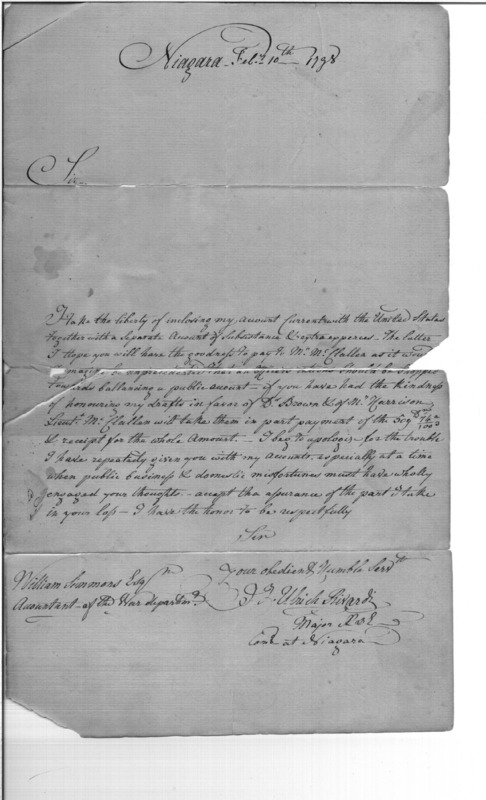 Niagara Feby. 10th 1798
Sir
I take the liberty of inclosing my account Current with the United States
together with a Separate Account of Subsistance & extra expences. The latter
I hope you will have the goodness to pay to Mr. McClallen as it would
towards ballancing a public account — if you have had the kindness
of honouring my drafts in favor of Dr. Brown & of Mr. Harrison
Lieut. McClallan will take them in part payment of the
& receipt for the whole Amount. — I beg to apologize for the trouble
I have repeatedly given you with my Accounts, especially at a time
when public business & domestic misfortunes must have wholly
engaged your thoughts — accept the assurance of the part I take
in your loss — I have the honor to be respectfully
Sir
Your obedient & Humble Servt.
William Simmons Esqr.
Accountant of the War department
J J Ulrich Rivardi
Major
Comt. at Niagara